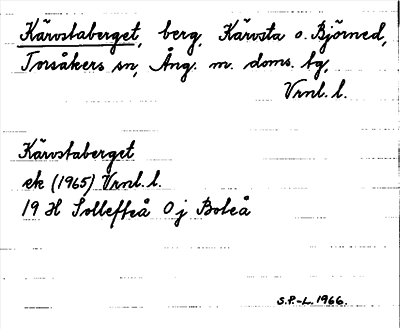 Kärvstaberget, berg, Kärvsta o. Björned,
Torsåkers sn, Ång. m. doms. tg,
Vrnl. l.
Kärvstaberget
ek (1965) Vrnl. l.
19 H Sollefteå 0 j Boteå
S.P.-L. 1966.